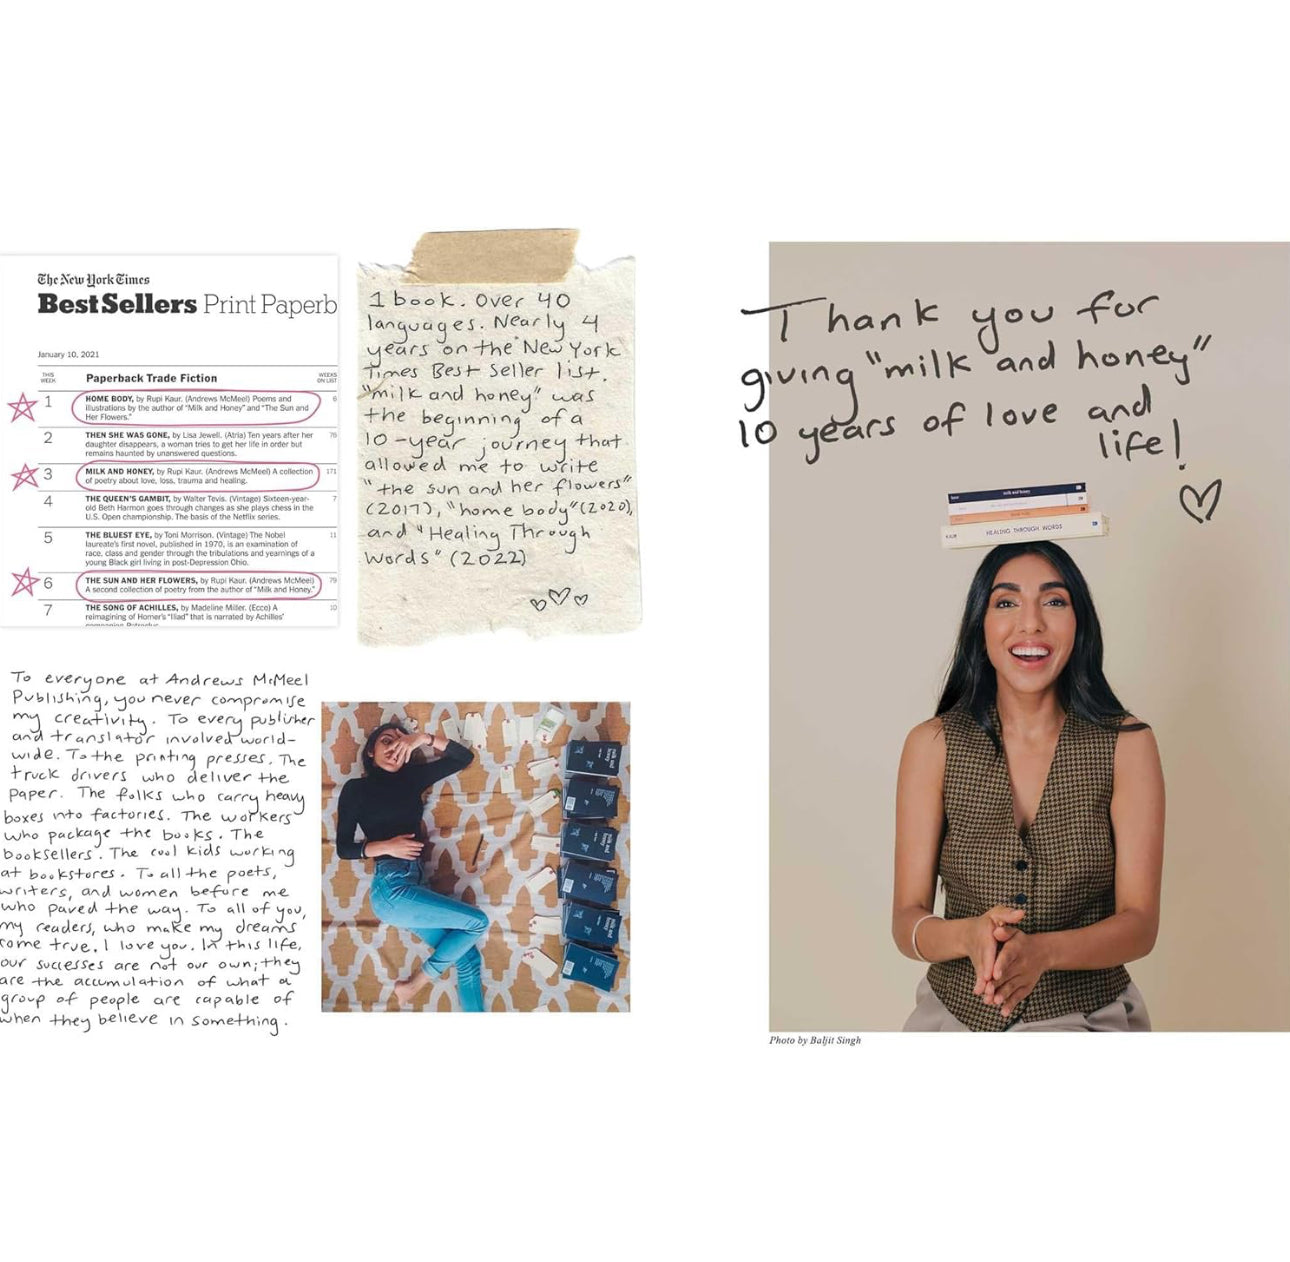 The New York Times
Best Sellers Print Paperb
January 10, 2021
THIS WEEK
Paperback Trade Fiction
WEEKS ON LIST
1
HOME BODY, by Rupi Kaur. (Andrews McMeel) Poems and
illustrations by the author of "Milk and Honey" and "The Sun and
Her Flowers."
6
2
THEN SHE WAS GONE, by Lisa Jewell. (Atria) Ten years after her
daughter disappears, a woman tries to get her life in order but
remains haunted by unanswered questions.
3
MILK AND HONEY, by Rupi Kaur. (Andrews McMeel) A collection
of poetry about love, loss, trauma and healing.
171
4
THE QUEEN'S GAMBIT, by Walter Tevis. (Vintage) Sixteen-year-
old Beth Harmon goes through changes as she plays chess in the
U.S. Open championship. The basis of the Netflix series.
7
5
THE BLUEST EYE, by Toni Morrison. (Vintage) The Nobel
laureate's first novel, published in 1970, is an examination of
race, class and gender through the tribulations and yearnings of a
young Black girl living in post-Depression Ohio.
11
6
THE SUN AND HER FLOWERS, by Rupi Kaur. (Andrews McMeel)
A second collection of poetry from the author of "Milk and Honey."
79
7
THE SONG OF ACHILLES, by Madeline Miller. (Ecco) A
reimagining of Homer's "Iliad" that is narrated by Achilles'
companion Patroclus.
10
1 book. Over 40
languages. Nearly 4
years on the New York
Times Best Seller list.
"milk and honey" was
the beginning of a
10-year journey that
allowed me to write
"the sun and her flowers"
(2017), "home body" (2020),
and "Healing Through
Words" (2022)
To everyone at Andrews McMeel
Publishing, you never compromise
my creativity. To every publisher
and translator involved world-
wide. To the printing presses. The
truck drivers who deliver the
paper. The folks who carry heavy
boxes into factories. The workers
who package the books. The
booksellers. The cool kids working
at bookstores. To all the poets,
writers, and women before me
who paved the way. To all of you,
my readers, who make my dreams
come true. I love you. In this life,
our successes are not our own; they
are the accumulation of what a
group of people are capable of
when they believe in something.
milk and honey
milk and honey
milk and honey
milk and honey
Thank you for
giving "milk and honey"
10 years of love and
life!
milk and honey
HEALING THROUGH WORDS
Photo by Baljit Singh